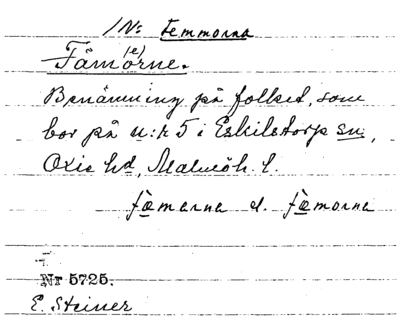 /N: Femmorna
Fäm(e)örne.
Benämning på folket, som
bor på n:r 5 i Eskilstorp sn,
Oxie hd, Malmöh. l.
fæmarna el. fæmorna
Nr 5725.
E. Steiner